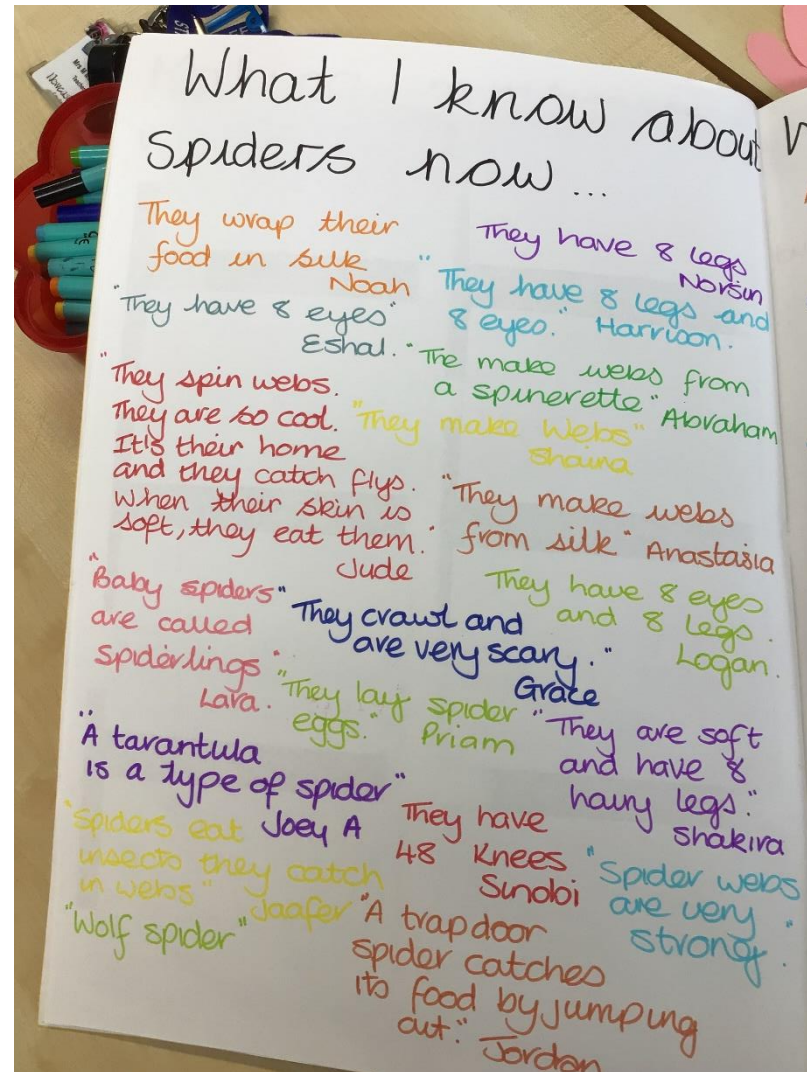 What I know about
Spiders now...
They wrap their
food in silk
Noah
They have 8 legs
Norsin
"They have 8 eyes"
Eshal.
"They have 8 legs and
8 eyes." Harrison.
"The make webs from
a spinerette" Abraham
"They spin webs.
They are so cool.
It's their home
and they catch flys.
When their skin is
soft, they eat them."
Jude
"They make Webs"
Shaina
"They make webs
from silk" Anastasia
"Baby spiders"
are called
Spiderlings"
Lara.
They have 8 eyes
and 8 legs.
Logan.
"They crawl and
are very scary."
Grace
"They lay spider
eggs." Priam
"They are soft
and have 8
hairy legs."
Shakira
"A tarantula
is a type of spider"
Joey A
They have
48 Knees
Sinobi
"Spiders eat
insects they catch
in webs" Jaafer
"Spider webs
are very
strong."
"Wolf spider"
"A trapdoor
spider catches
its food by jumping
out." Jordan